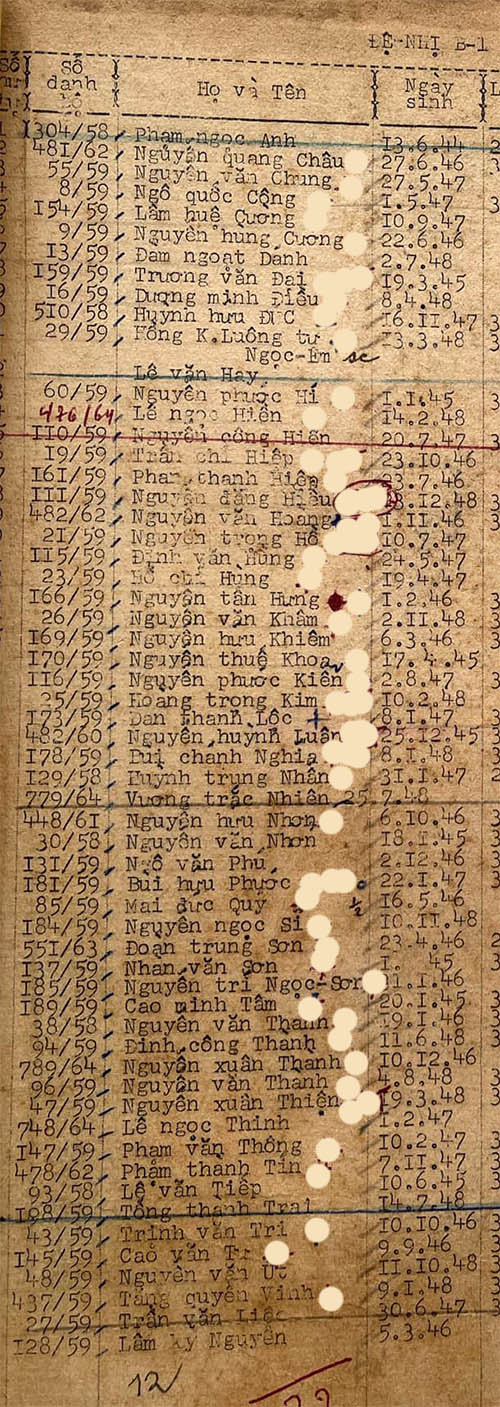 ĐỆ-NHỊ B-1
Số danh bộ Họ và Tên Ngày sinh
304/58 Phạm ngọc Anh 13.6.44
481/62 Nguyễn quang Châu 27.6.46
55/59 Nguyễn văn Chung 27.5.47
8/59 Ngô quốc Cộng 1.5.47
154/59 Lâm huê Quương 10.9.47
9/59 Nguyễn hung Cương 22.6.46
13/59 Đàm ngoạt Danh 2.7.48
159/59 Trương văn Đại 19.3.45
16/59 Dương minh Điều 8.4.48
510/58 Huỳnh hưu ĐỨC 16.11.47
29/59 Hồng K.Luông tư 13.3.48
Ngọc-Em
Lê văn Hay
60/59 Nguyễn phước Hí 1.1.45
476/64 Lê ngọc Hiền 14.2.48
110/59 Nguyễn công Hiến 20.7.47
19/59 Trần chí Hiệp 23.10.46
161/59 Phan thanh Hiệp 3.7.46
111/59 Nguyễn đăng Hiếu 8.12.48
482/62 Nguyễn văn Hoàng 1.11.46
21/59 Nguyễn trọng Hồ 10.7.47
115/59 Đinh văn Hùng 24.5.47
23/59 Hồ chí Hùng 19.4.47
166/59 Nguyễn tấn Hưng 1.2.46
26/59 Nguyễn văn Khâm 2.11.48
169/59 Nguyễn hưu Khiêm 6.3.46
170/59 Nguyễn thuế Khoa 17.4.45
116/59 Nguyễn phước Kiển 2.8.47
25/59 Hoàng trọng Kim 10.2.48
173/59 Đan thanh Lộc 8.1.47
482/60 Nguyễn huỳnh Luân 25.12.45
178/59 Bùi chanh Nghĩa 8.1.48
129/58 Huỳnh trung Nhân 31.1.47
779/64 Vương trắc Nhiên 25.7.48
448/61 Nguyễn hưu Nhơn 6.10.46
30/58 Nguyễn văn Nhơn 18.1.45
131/59 Ngô văn Phú 2.12.46
181/59 Bùi hưu Phước 22.1.47
85/59 Mai đưc Quý 16.5.46
184/59 Nguyễn ngọc Sĩ 10.11.48
551/63 Đoạn trung Sơn 23.4.46
137/59 Nhan văn Sơn 1. 45
185/59 Nguyễn tri Ngọc-Sơn 1.46
189/59 Cao minh Tâm 20.1.45
38/58 Nguyễn văn Thanh 19.1.46
94/59 Đinh công Thanh 11.6.48
789/64 Nguyễn xuân Thanh 10.12.46
96/59 Nguyễn văn Thanh 4.8.48
47/59 Nguyễn xuân Thiên 9.3.48
748/64 Lê ngọc Thinh 1.2.47
147/59 Phạm văn Thông 10.2.47
478/62 Phâm thanh Tín 7.11.47
93/58 Lê văn Tiếp 10.6.45
198/59 Tống thanh Trai 14.7.48
43/59 Trinh văn Tri 10.10.46
145/59 Cao văn 9.9.46
48/59 Nguyễn văn Út 11.10.48
437/59 Tăng quyến Vinh 9.1.48
27/59 Trần văn 30.6.47
128/59 Lâm kỳ Nguyên 5.3.46
12